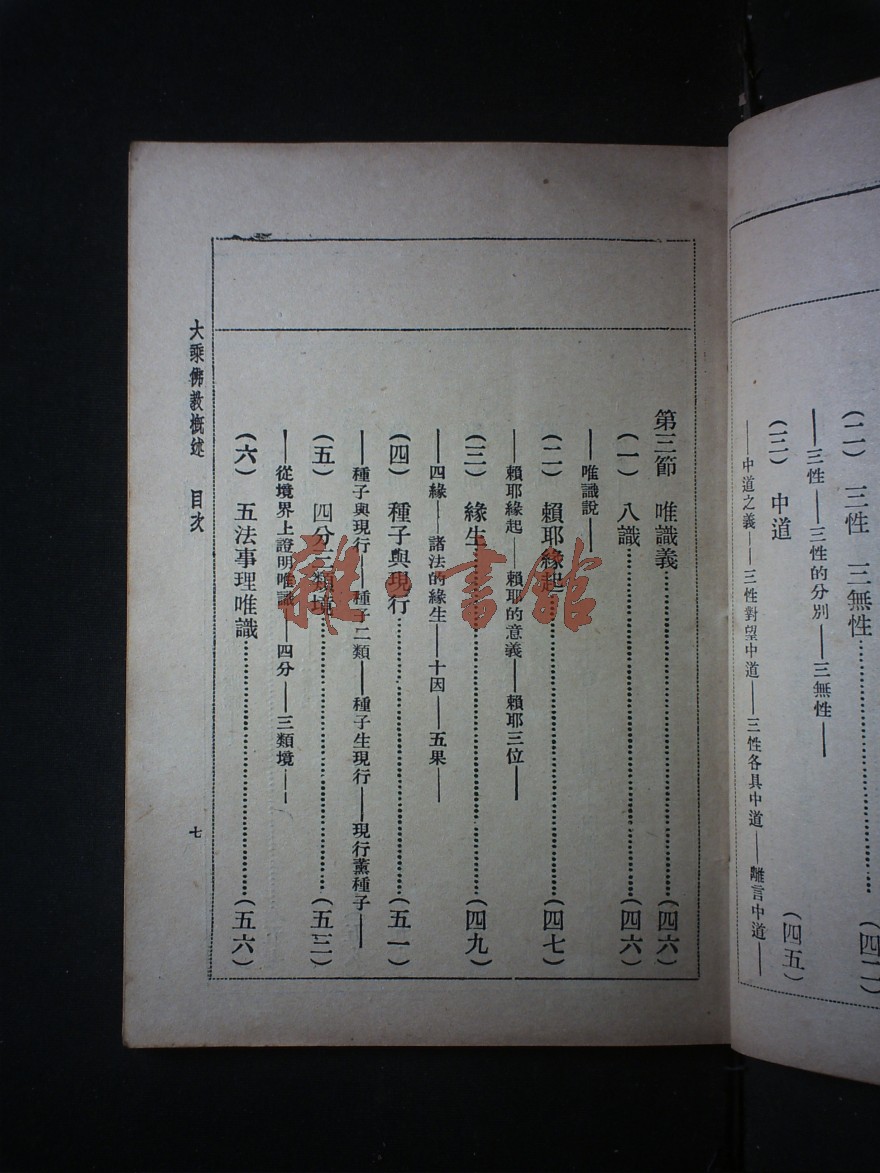 (二) 三性 三無性……(四二)
——三性——三性的分別——三無性——
(三) 中道 (四五)
——中道之義——三性對望中道——三性各具中道——離言中道——
第三節 唯識義……(四六)
(一) 八識……(四六)
——唯識說——
(二) 賴耶緣起……(四七)
——賴耶緣起——賴耶的意義——賴耶三位——
(三) 緣生……(四九)
——四緣——諸法的緣生——十因——五果——
(四) 種子與現行……(五一)
——種子與現行——種子二類——種子生現行——現行薰種子——
(五) 四分三類境……(五三)
——從境界上證明唯識——四分——三類境——
(六) 五法事理唯識……(五六)
大乘佛教概述 目次
七
雜·書館